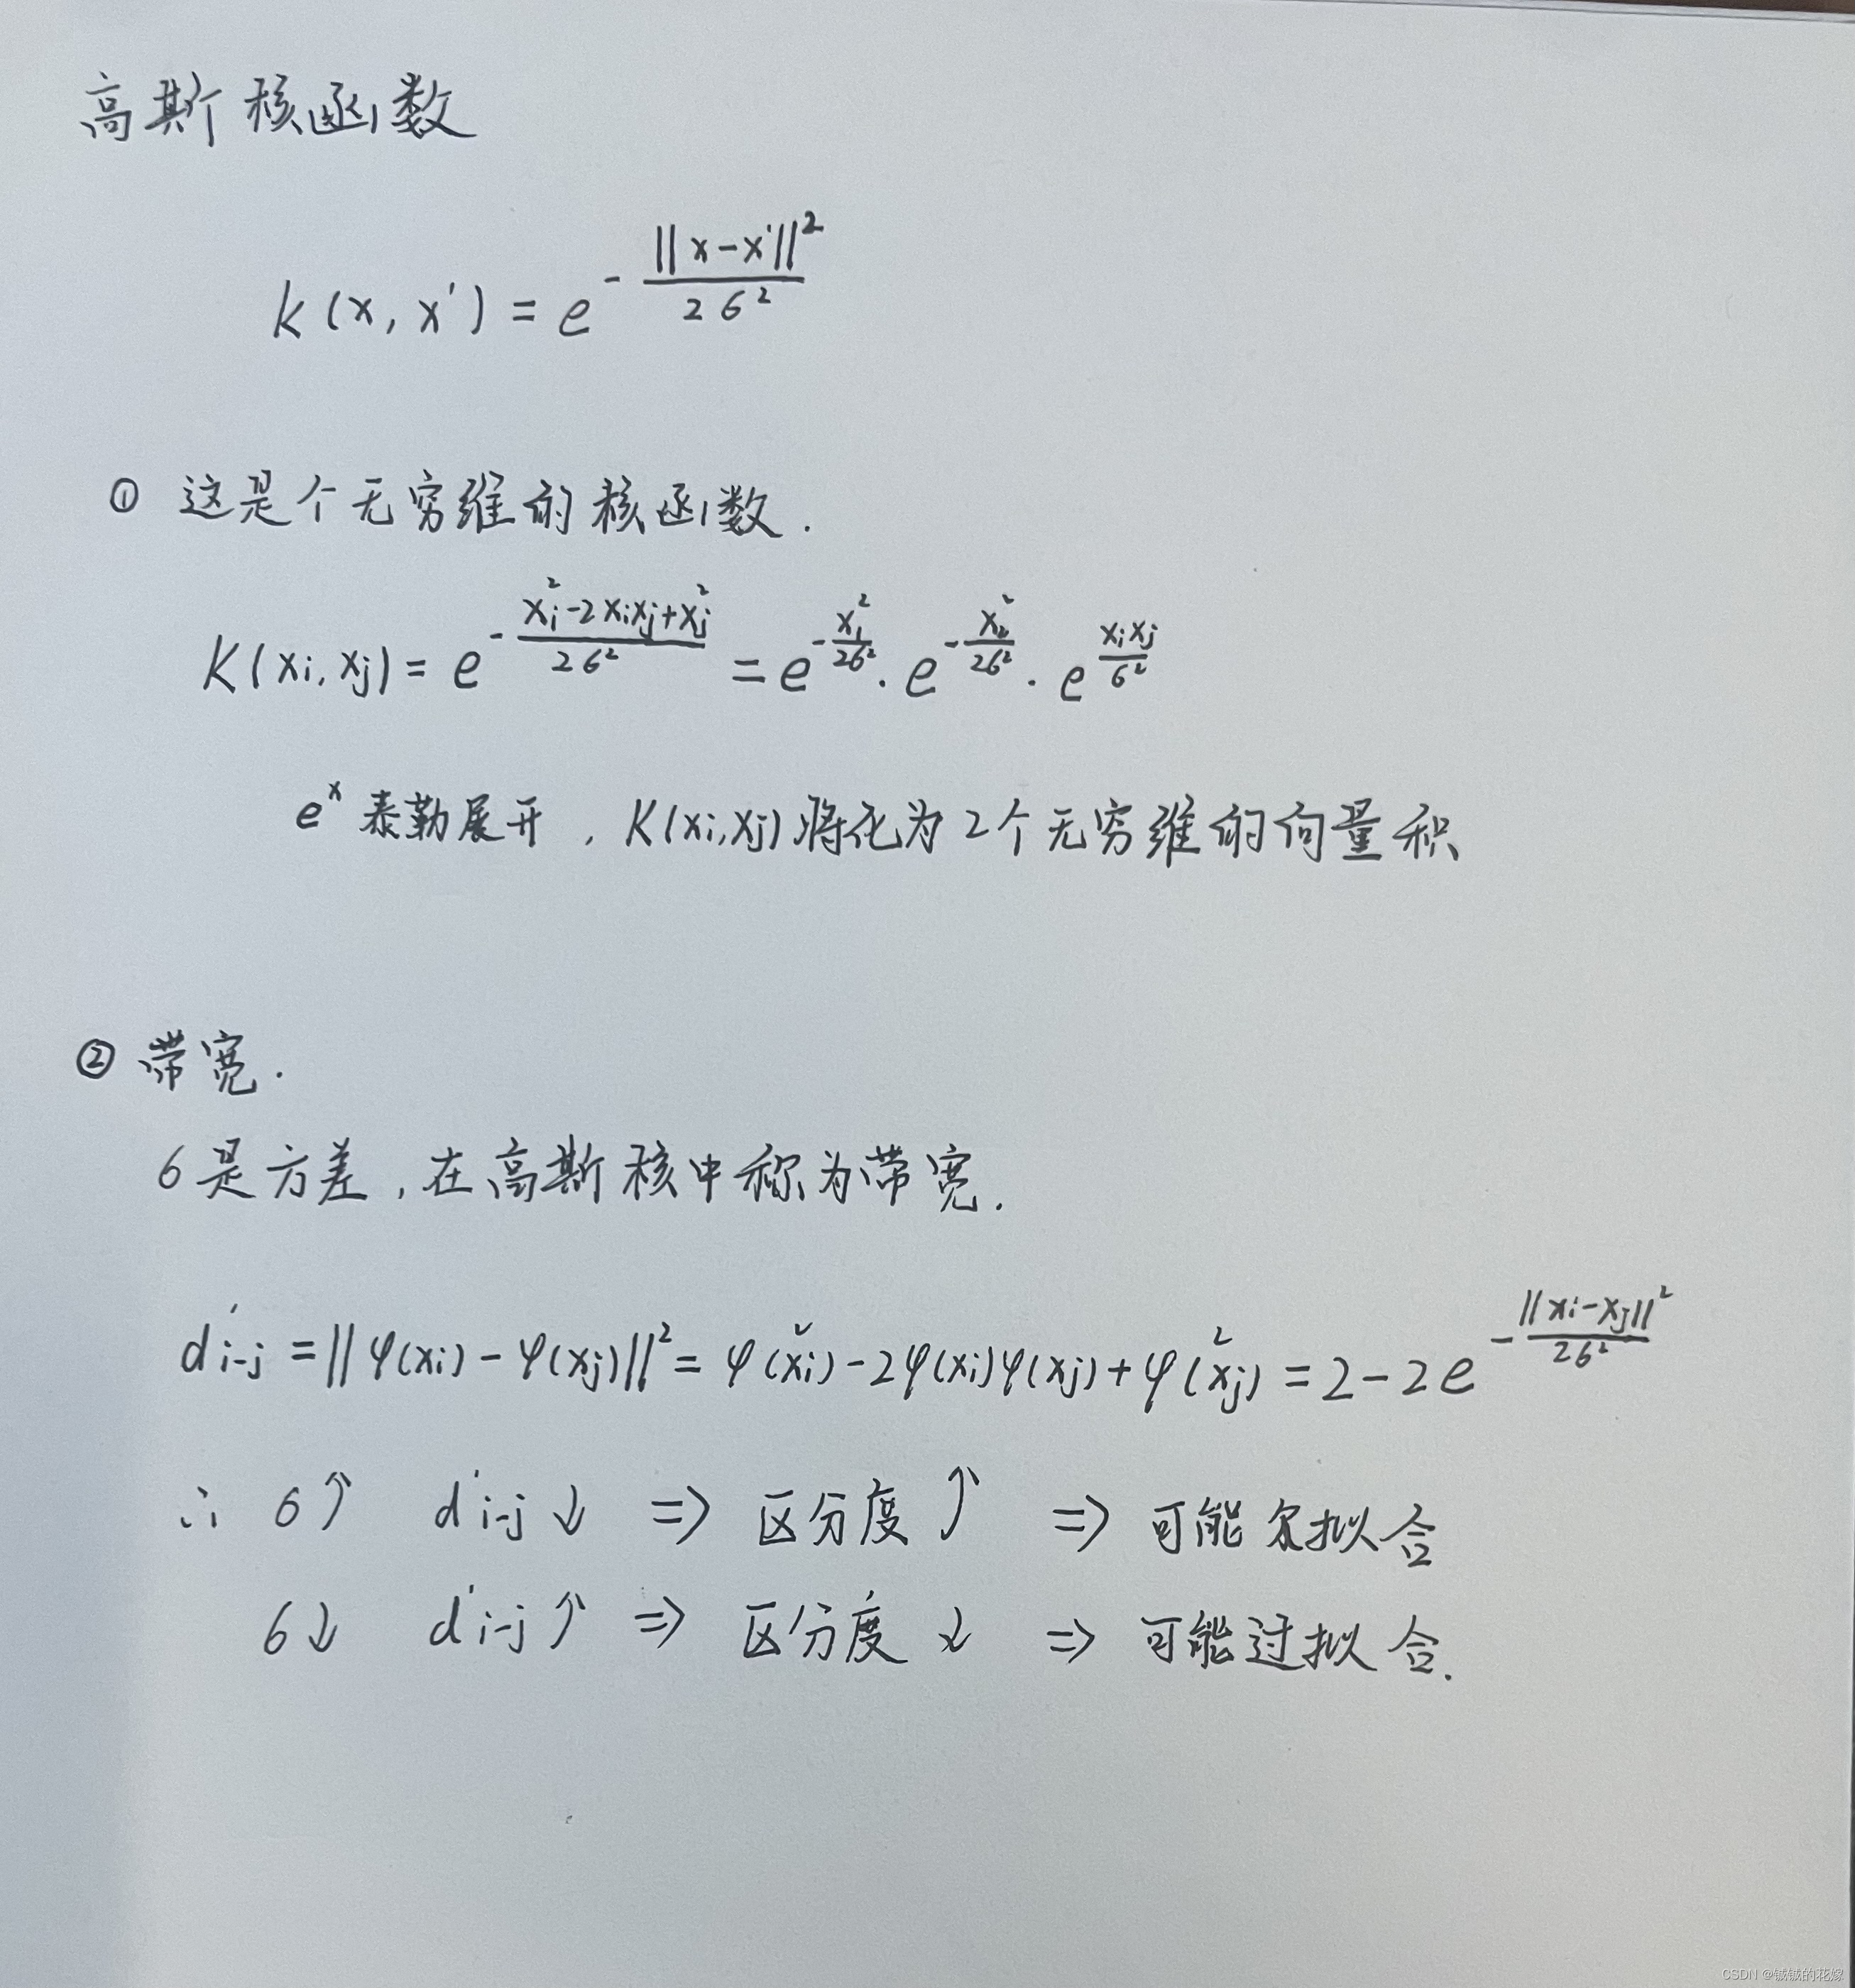 高斯核函数
k(x, x') = e^{-\frac{||x-x'||^2}{2σ^2}}
① 这是个无穷维的核函数.
K(xi, xj) = e^{-\frac{xi^2-2xixj+xj^2}{2σ^2}} = e^{-\frac{x1^2}{2σ^2}} · e^{-\frac{x2^2}{2σ^2}} · e^{\frac{xixj}{σ^2}}
e^x 泰勒展开, K(xi,xj)将化为2个无穷维的向量积
② 带宽.
σ是方差,在高斯核中称为带宽.
d'i-j = ||φ(xi) - φ(xj)||^2 = φ(xi)^2 - 2φ(xi)φ(xj) + φ(xj)^2 = 2 - 2e^{-\frac{||xi-xj||^2}{2σ^2}}
∴ σ↑ d'i-j ↓ => 区分度↑ => 可能欠拟合
σ↓ d'i-j ↑ => 区分度↓ => 可能过拟合.
CSDN @铖铖的花嫁